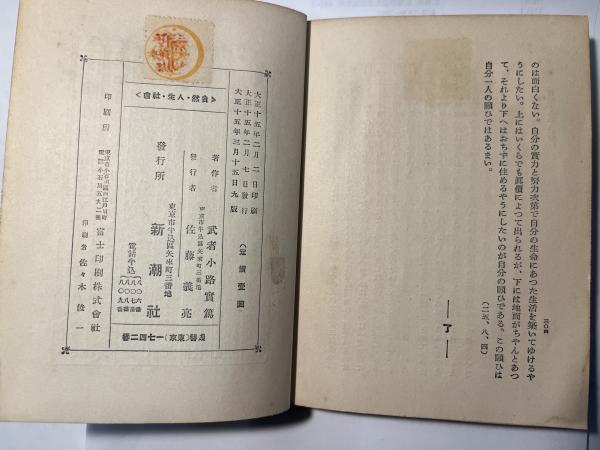 三〇四
のは面白くない。自分の實力と努力次第で自分の生命にあつた生活を築いてゆけるや
うにしたい。上にはいくらでも眞價によつて出られるが、下には地面がちやんとあつ
て、それより下へはおちずに住めるやうにしたいのが自分の願ひである。この願ひは
自分一人の願ひではあるまい。
(一五、八、四)
―了―
大正十五年二月二日印刷
大正十五年二月七日發行
大正十五年三月十五日九版
《自然・人生・社會》
(定價壹圓)
著作者 武者小路實篤
東京市牛込區矢來町三番地
發行者 佐藤義亮
東京市牛込區矢來町三番地
發行所 新潮社
電話牛込
振替(東京)一七四二番
印刷所
富士印刷株式會社
印刷者 佐々木俊一